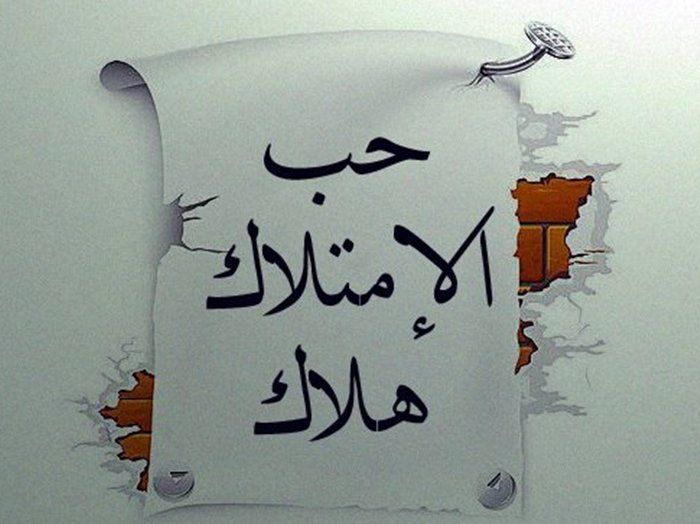 حب
الإ متلاك
هلاك